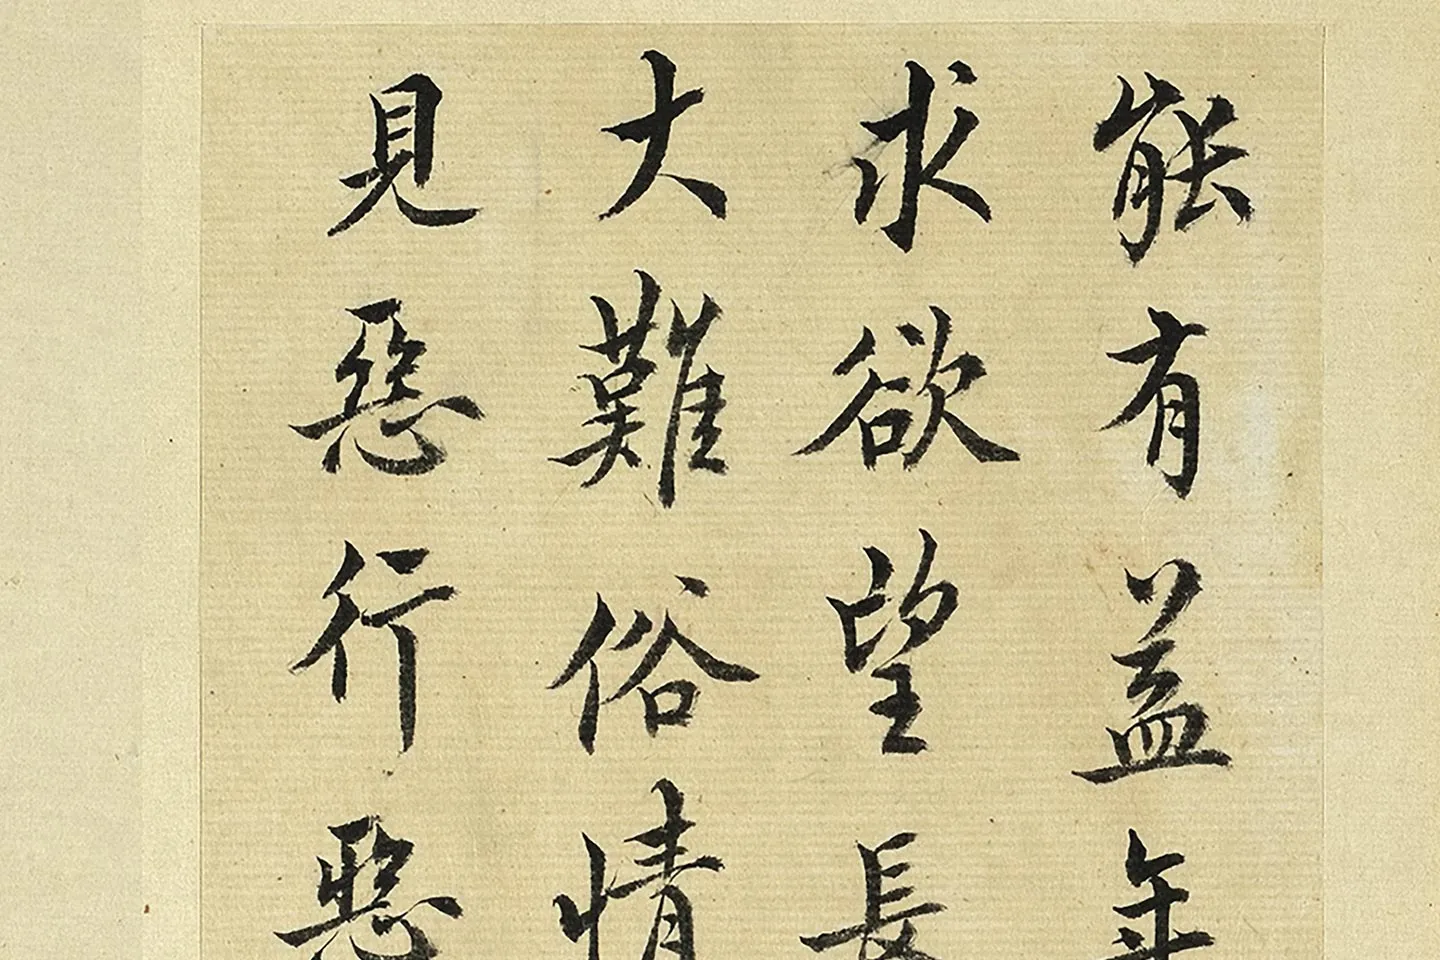 能有益年
求欲望長
大難俗情
見惡行惡